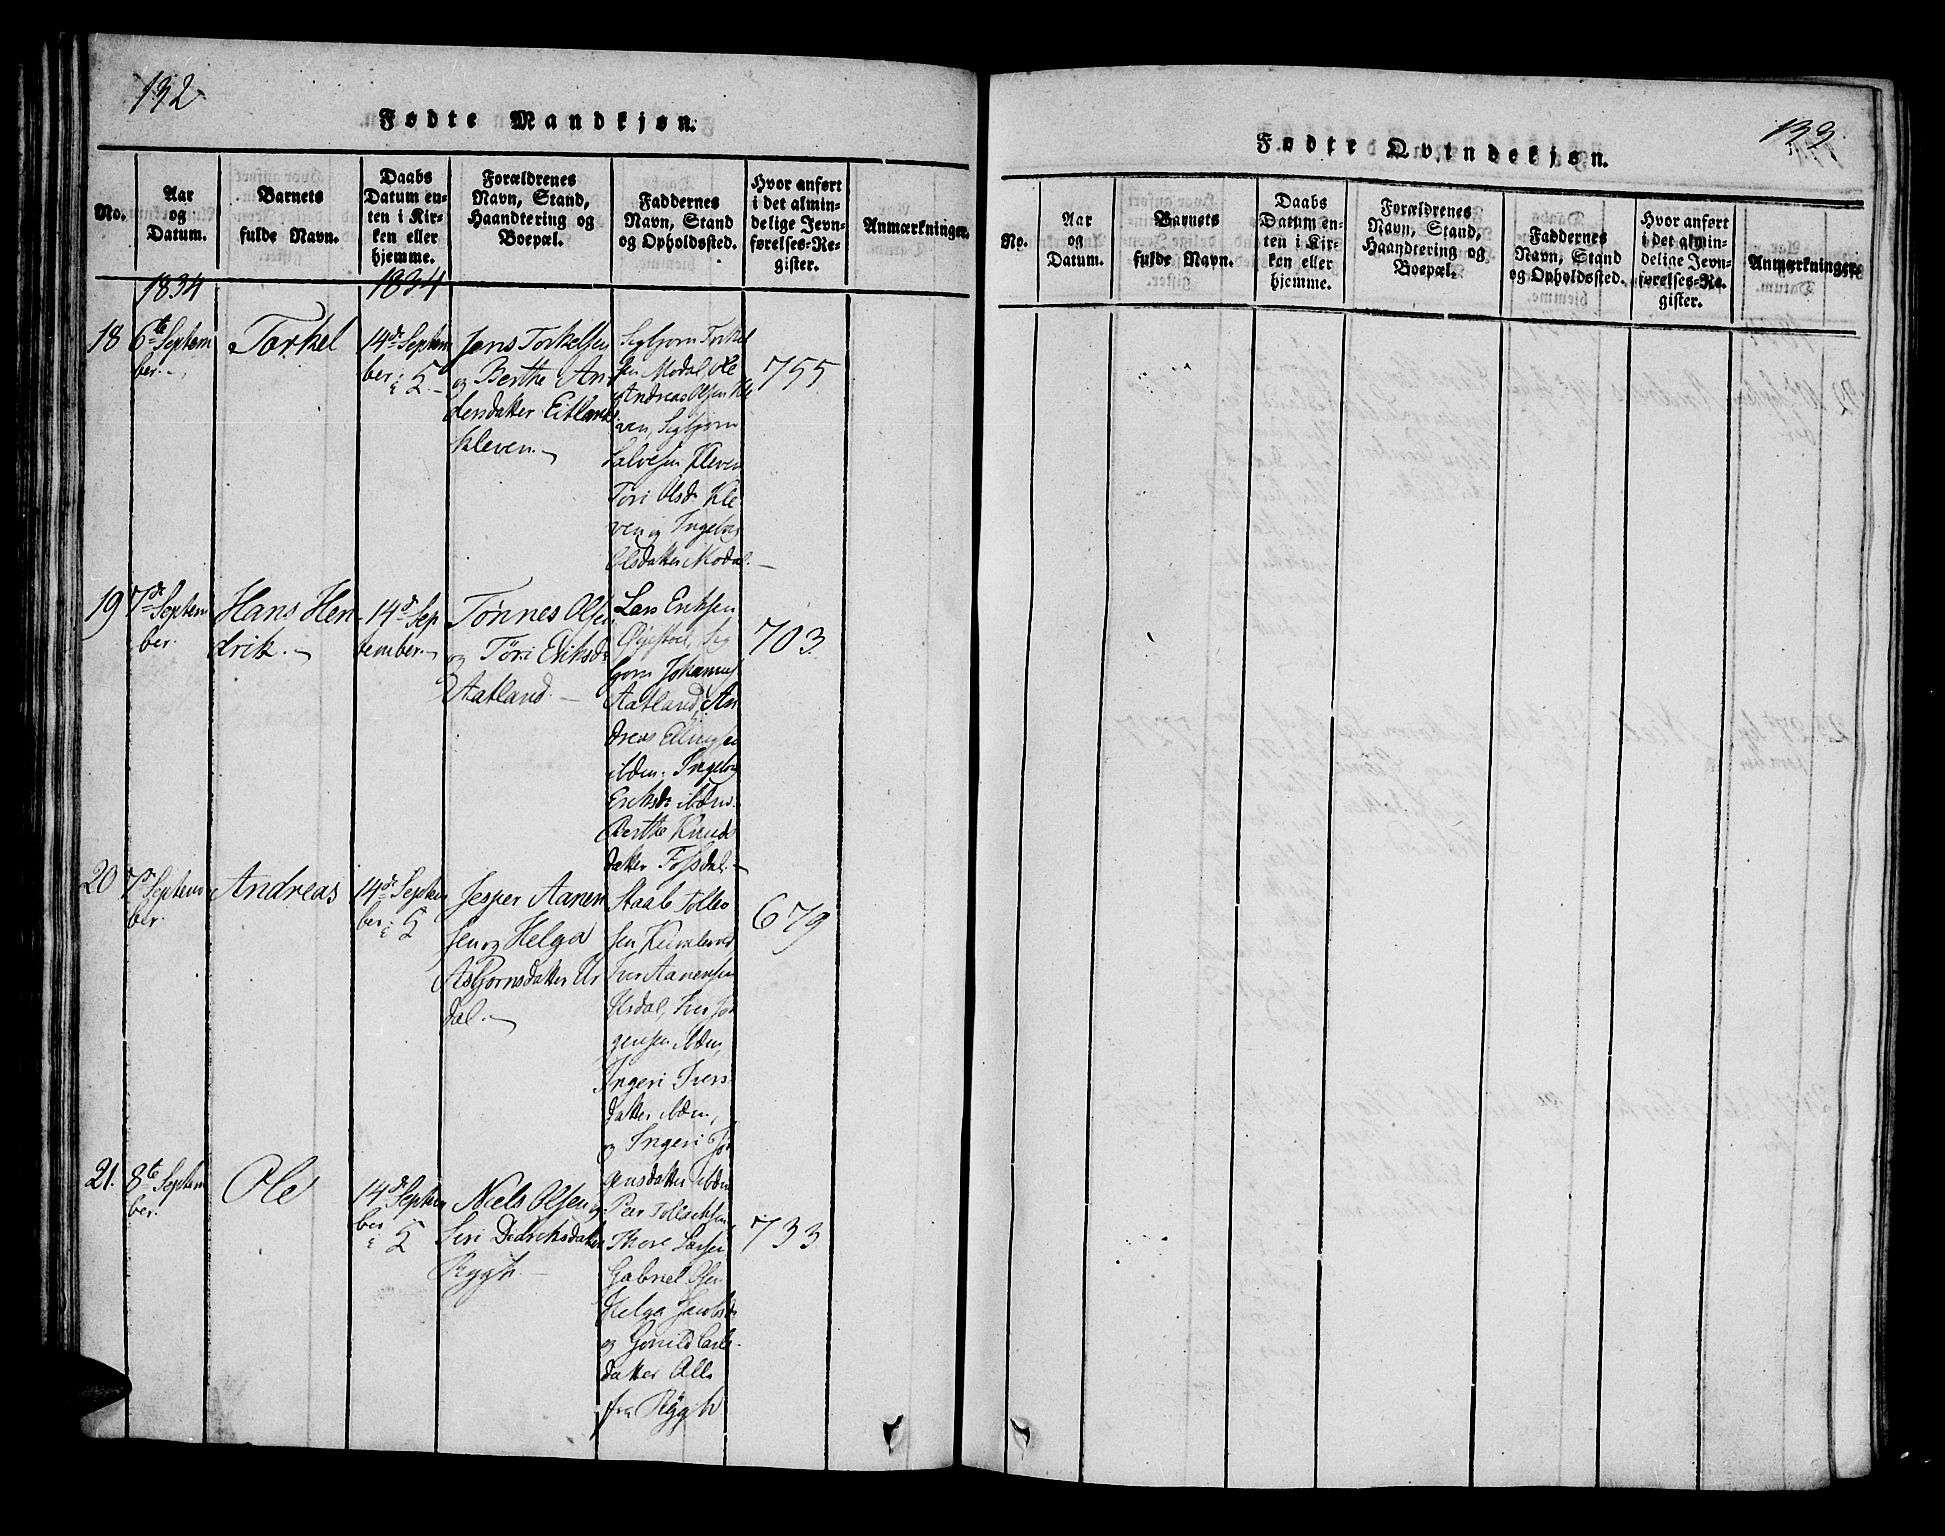 132
Fødte Mandkjøn.
No.
Aar
og
Datum.
Barnets
fulde Navn.
Daabs
Datum en-
ten i Kir-
ken eller
hjemme.
Forældrenes
Navn, Stand,
Haandtering og
Boepæl.
Faddernes
Navn, Stand
og Opholdssted.
Hvor anført
i det almin-
delige Jevn-
førelses-Re-
gister.
Anmærkninger.
1834
1834
18
6te Septem
ber.
Torkel
14de Septem
ber i
Jens Torkelsen
og Berthe An
densdatter Eitlands
kleven.
Sigbjørn Torkel
sen Modal, Ole
Andreas Olsen Kle
ven, Sigbjørn
Salvesen Kleven
Töri Olsdr Kle
ven og Ingeborg
Olsdatter Modal.
755
19
7de Septem
ber.
Hans Hen
drik.
14de Sep
tember.
Tönnes Olsen
og Töri Eriksdr
Aatland.
Lars Eriksen
Sig
bjørn Johannes
Aatland, An
dreas Ellingsen
ibdm. Ingeborg
Eriksdr ibdm.
Berthe Knuds
datter Fossdal.
703
20
7de Septem
ber.
Andreas
14de Septem
ber i
Jesper Aanen
sen og Helga
Asbjørnsdatter Ur
dal.
Staale Tollev
sen
Iver Aanensen
Urdal, Iver Jör
gensen ibdm,
Ingeri Ivers
datter ibdm,
og Ingeri Jör
gensdatter ibdm
679
21.
8te Septem
ber.
Ole
14de Septem
ber i
Niels Olsen og
Siri Didriksdatter
Rygh.
Peer Tollachsen
Thore Larsen
Gabriel Olsen
Helga Jacobsdr
og Gonild Carls
datter Alle
fra Rygh
733
133.
Fødte Qvindekjøn.
No.
Aar
og
Datum.
Barnets
fulde Navn.
Daabs
Datum en-
ten i Kir-
ken eller
hjemme.
Forældrenes
Navn, Stand,
Haandtering og
Boepæl.
Faddernes
Navn, Stand
og Opholdssted.
Hvor anført
i det almin-
delige Jevn-
førelses-Re-
gister.
Anmærkninger.